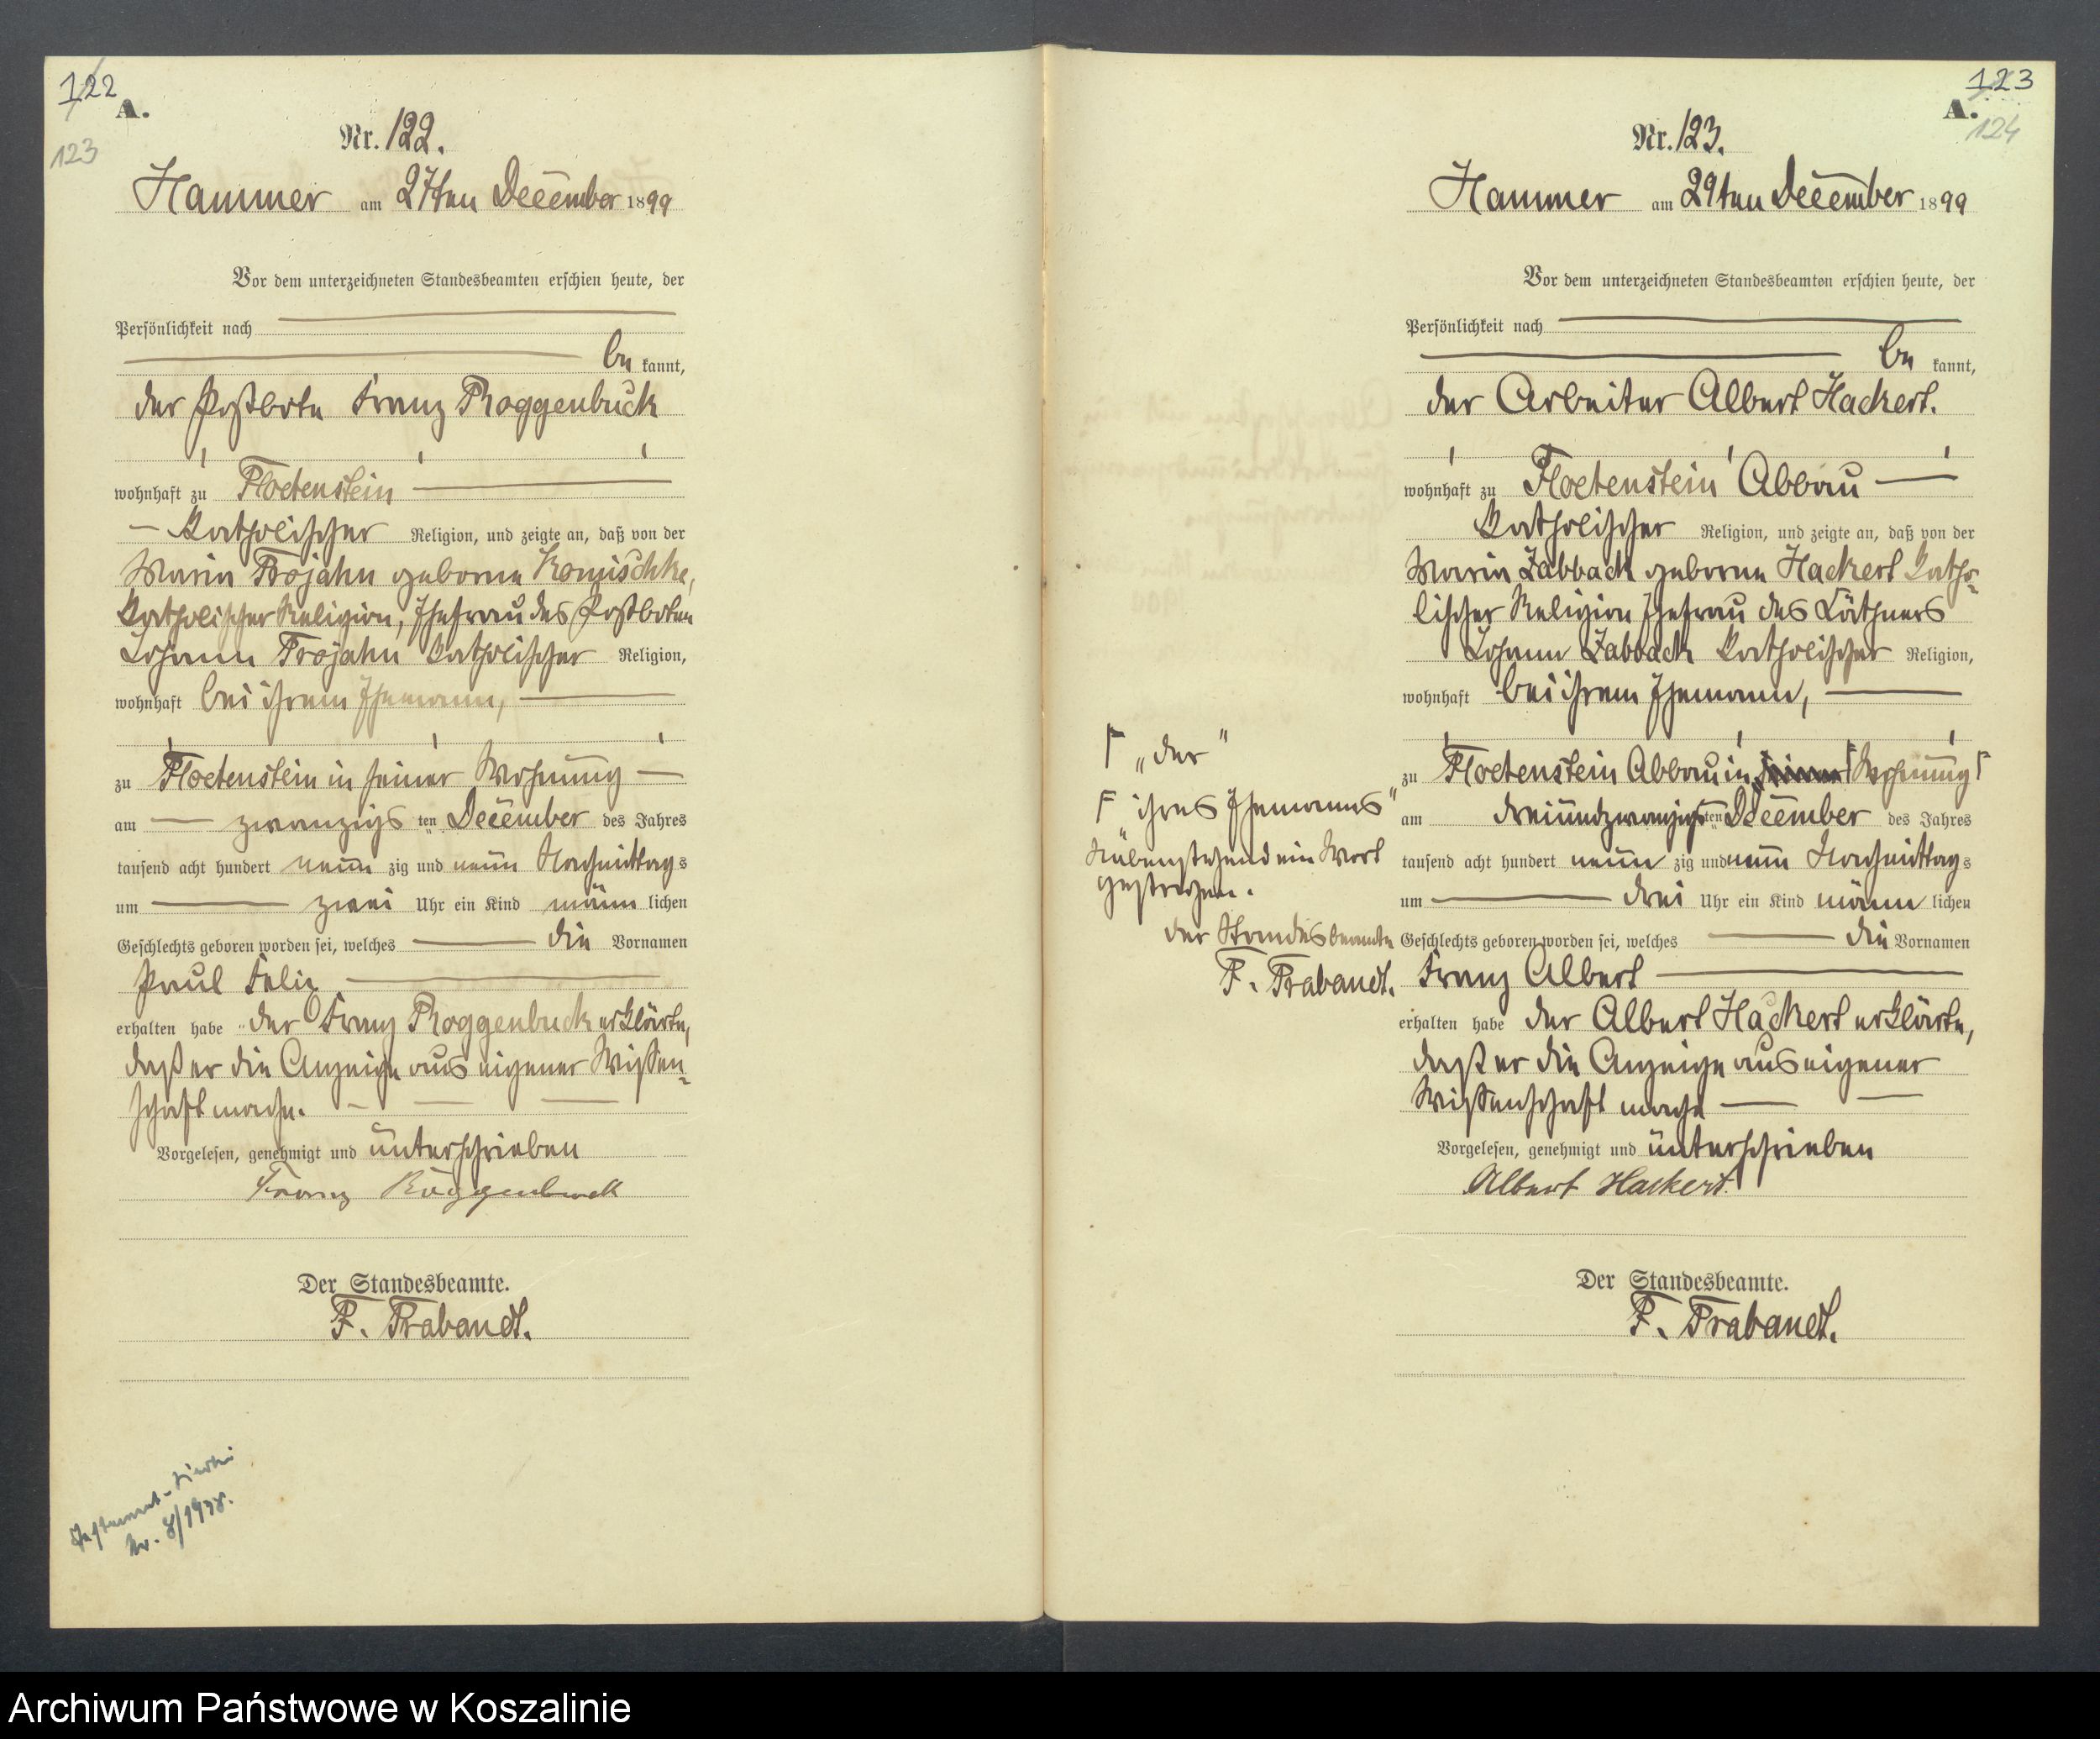 122
A.
123
Nr. 122.
Hammer am 27ten December 1899
Vor dem unterzeichneten Standesbeamten erschien heute, der
Persönlichkeit nach
be kannt,
der Postbote Franz Roggenbuck
wohnhaft zu Floetenstein
katholischer Religion, und zeigte an, daß von der
Maria Trojahn geborne Komischke,
katholischer Religion, Ehefrau des Postboten
Johann Trojahn katholischer Religion,
wohnhaft bei ihrem Ehemann,
zu Floetenstein in seiner Wohnung
am zwanzigs ten December des Jahres
tausend acht hundert neun zig und neun Nachmittags
um zwei Uhr ein Kind männ lichen
Geschlechts geboren worden sei, welches die Vornamen
Paul Felix
erhalten habe der Franz Roggenbuck erklärte,
daß er die Anzeige aus eigener Wissen-
schaft mache.
Vorgelesen, genehmigt und unterschrieben
Franz Roggenbuck
Der Standesbeamte.
F. Trabandt.
Nr. 8/1938.
123
A.
124
Nr. 123.
Hammer am 29ten December 1899
Vor dem unterzeichneten Standesbeamten erschien heute, der
Persönlichkeit nach
be kannt,
der Arbeiter Albert Hackert.
wohnhaft zu Floetenstein Abbau
katholischer Religion, und zeigte an, daß von der
Maria Zabback geborne Hackert katho-
lischer Religion Ehefrau des Käthners
Johann Zabback katholischer Religion,
wohnhaft bei ihrem Ehemann,
zu Floetenstein Abbau in seiner Wohnung
am dreiundzwanzigsten December des Jahres
tausend acht hundert neun zig und neun Nachmittags
um drei Uhr ein Kind männ lichen
Geschlechts geboren worden sei, welches die Vornamen
Franz Albert
erhalten habe der Albert Hackert erklärte,
daß er die Anzeige aus eigener
Wissenschaft mache
Vorgelesen, genehmigt und unterschrieben
Albert Hackert.
Der Standesbeamte.
F. Trabandt.
„der"
„ihres Ehemanns"
Nebenstehend ein Wort
gestrichen.
der Standesbeamte
F. Trabandt.
Archiwum Państwowe w Koszalinie